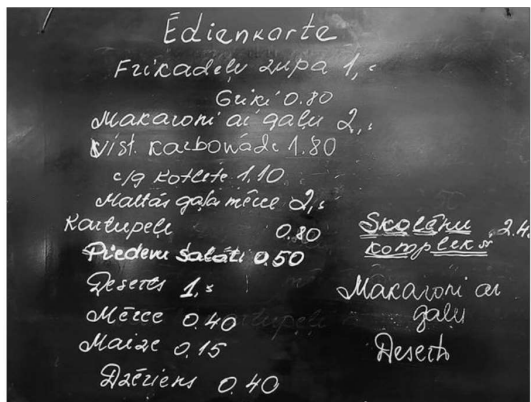 Ēdienkarte
Frikadeļu zupa 1,-
Griķi 0.80
Makaroni ar gaļu 2,-
Vist. karbonāde 1.80
c/g kotlete 1.10
Maltās gaļas mērce 2,-
Kartupeļi 0.80
Piedeva Salāti 0.50
Deserts 1,-
Mērce 0.40
Maize 0.15
Dzēriens 0.40
Skolēnu 2.4
komplekss
Makaroni ar
gaļu
Deserts